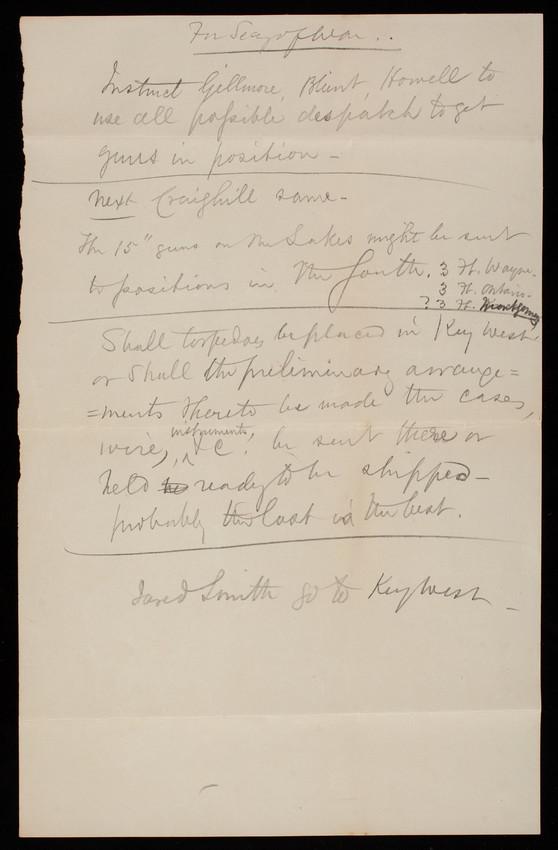 For Secy of War..
Instruct Gillmore, Blunt, Howell to
use all possible despatch to get
guns in position -
next Craighill same -
The 15" guns on the Lakes might be sent
to positions in the South. 3 Ft. Wayne -
3 Ft. Ontario -
? 3 Ft. Montgomery
Shall torpedoes be placed in Key West
or shall the preliminary arrange=
=ments thereto be made the cases,
instruments,
wire, ^ &c. be sent there or
held to ready to be shipped -
probably the last is the best.
Jared Smith go to Key West -